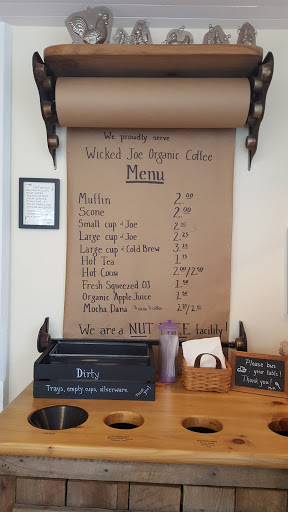 We proudly serve
Wicked Joe Organic Coffee
Menu
Muffin 2.00
Scone 2.00
Small cup of Joe 2.00
Large cup of Joe 2.25
Large cup of Cold Brew 3.25
Hot Tea 1.75
Hot Cocoa 2.00/2.50
Fresh Squeezed OJ 1.50
Organic Apple Juice 1.50
Mocha Dana
We are a NUT facility!
Dirty
Trays, empty cups, silverware
Please bus
your table!
Thank you!